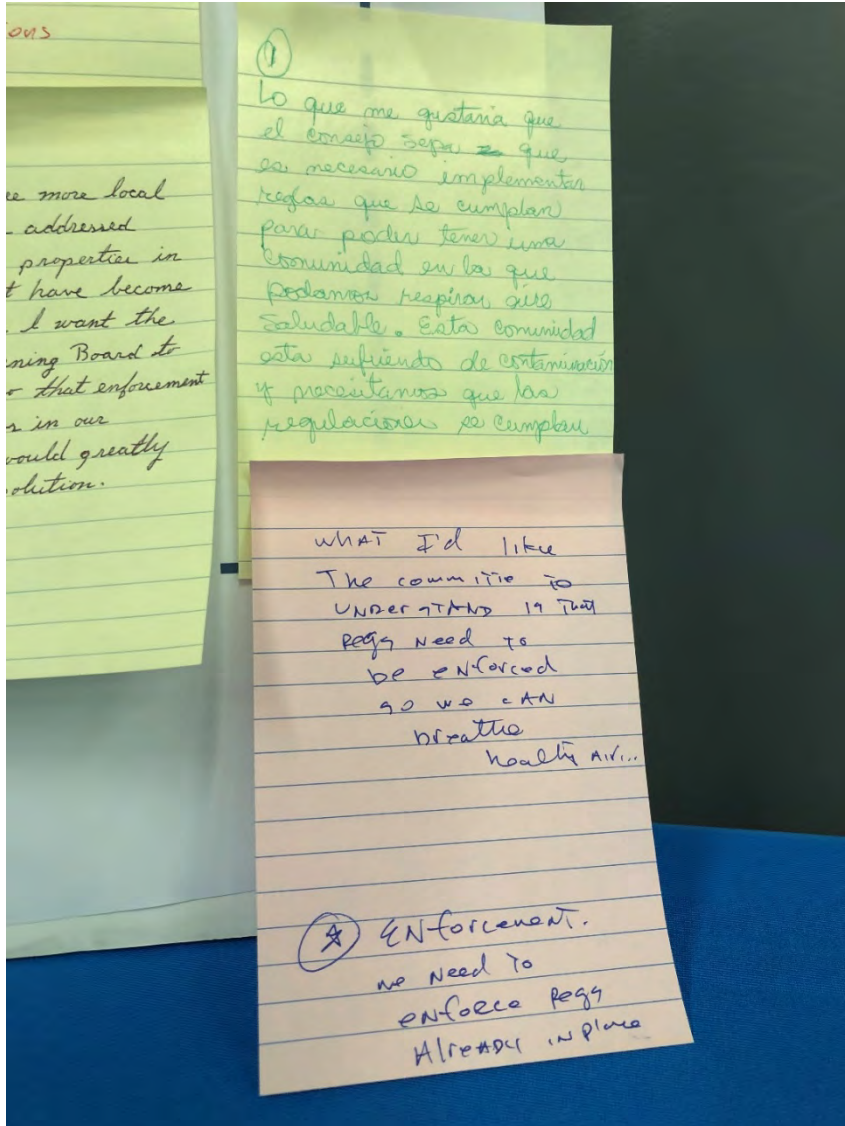 ons
e more local
addressed
properties in
t have become
I want the
ning Board to
that enforcement
s in our
would greatly
olution.
1
Lo que me gustaria que
el consejo sepa que
es necesario implementar
reglas que se cumplan
para poder tener una
comunidad en la que
podamos respirar aire
saludable. Esta comunidad
esta sufriendo de contaminación
y necesitamos que las
regulaciones se cumplan
WHAT I'd like
The committie to
UNDerSTAND is that
Regs Need to
be eNforced
so we cAN
breathe
healthy Air...
ENforcemenT.
we Need To
eNforce Regs
AlreADy iN place